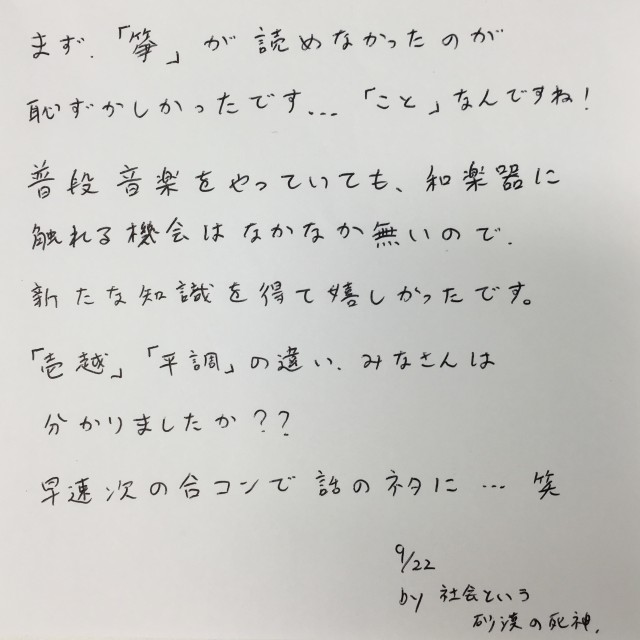 まず、「箏」が読めなかったのが
恥ずかしかったです…「こと」なんですね!
普段音楽をやっていても、和楽器に
触れる機会はなかなか無いので、
新たな知識を得て嬉しかったです。
「壱越」「平調」の違い、みなさんは
分かりましたか??
早速次の合コンで話のネタに… 笑
9/22
by 社会という
砂漠の死神.